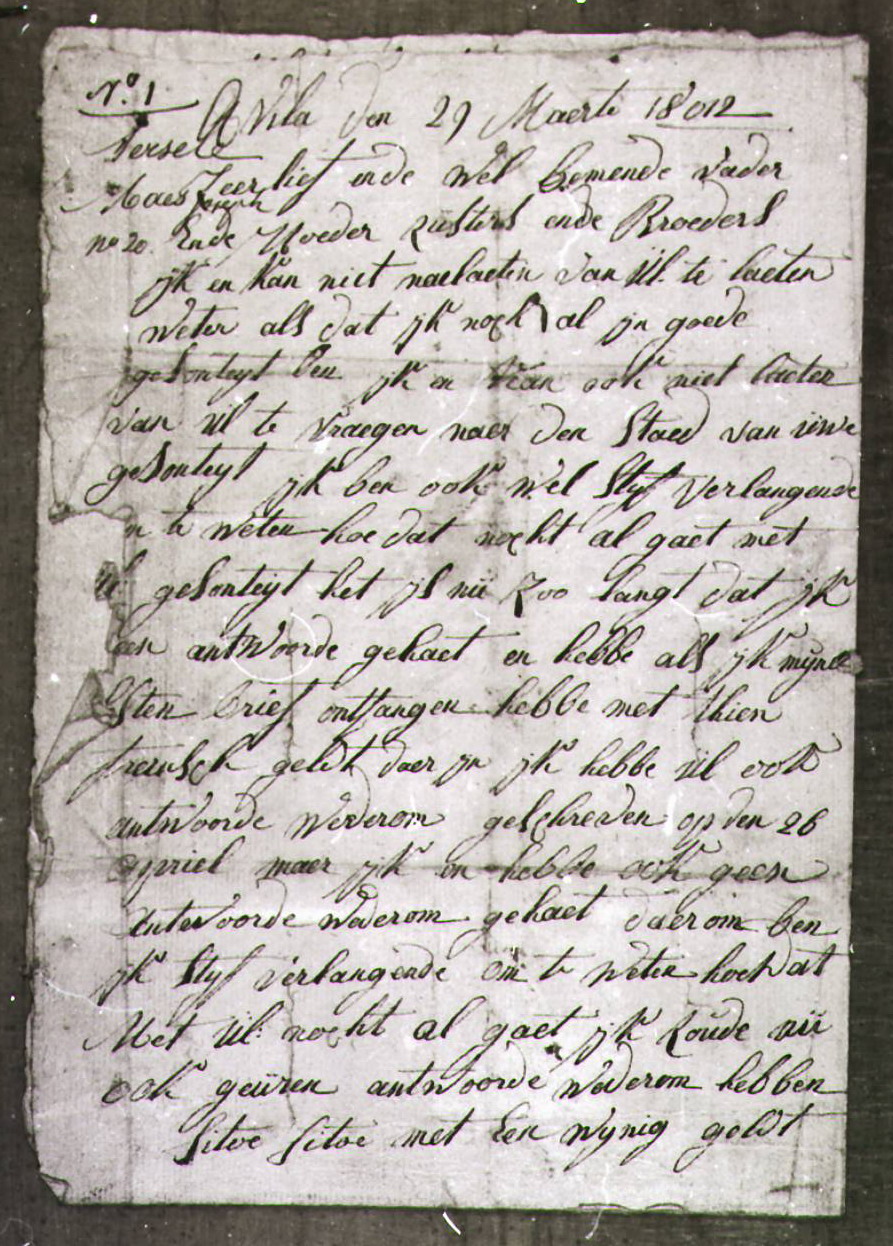 N.º 1
A Vila den 29 Maerte 18012
Versele
Maes Joseph
nº 20
Zeer lief ende wel Bemende vader
Ende Moeder zusters ende Broeders
ijk en kan niet naelaeten van Ul. te laeten
weter als dat ijk noch al jn goede
gesonteyt ben ijk en kan ook niet laeten
van Ul te vraegen naer den Staed van uwe
gesonteyt ijk ben ook wel Styf verlangende
m te weten hoe dat nocht al gaet met
Ul gesonteyt het ijs nu zoo langt dat ijk
een antwoorde gehaet en hebbe als ijk myne
lsten brief ontfangen hebbe met thien
freinsch geldt daer jn ijk hebbe Ul ook
antwoorde wederom geschreven op den 26
apriel maer ijk en hebbe ook geen
antwoorde wederom gehaet daerom ben
ijk Styf verlangende om te weten hoe dat
Met Ul. nocht al gaet ijk zoude nu
ook geuren antwoorde wederom hebben
Sitoe Sitoe met Een wynig geldt